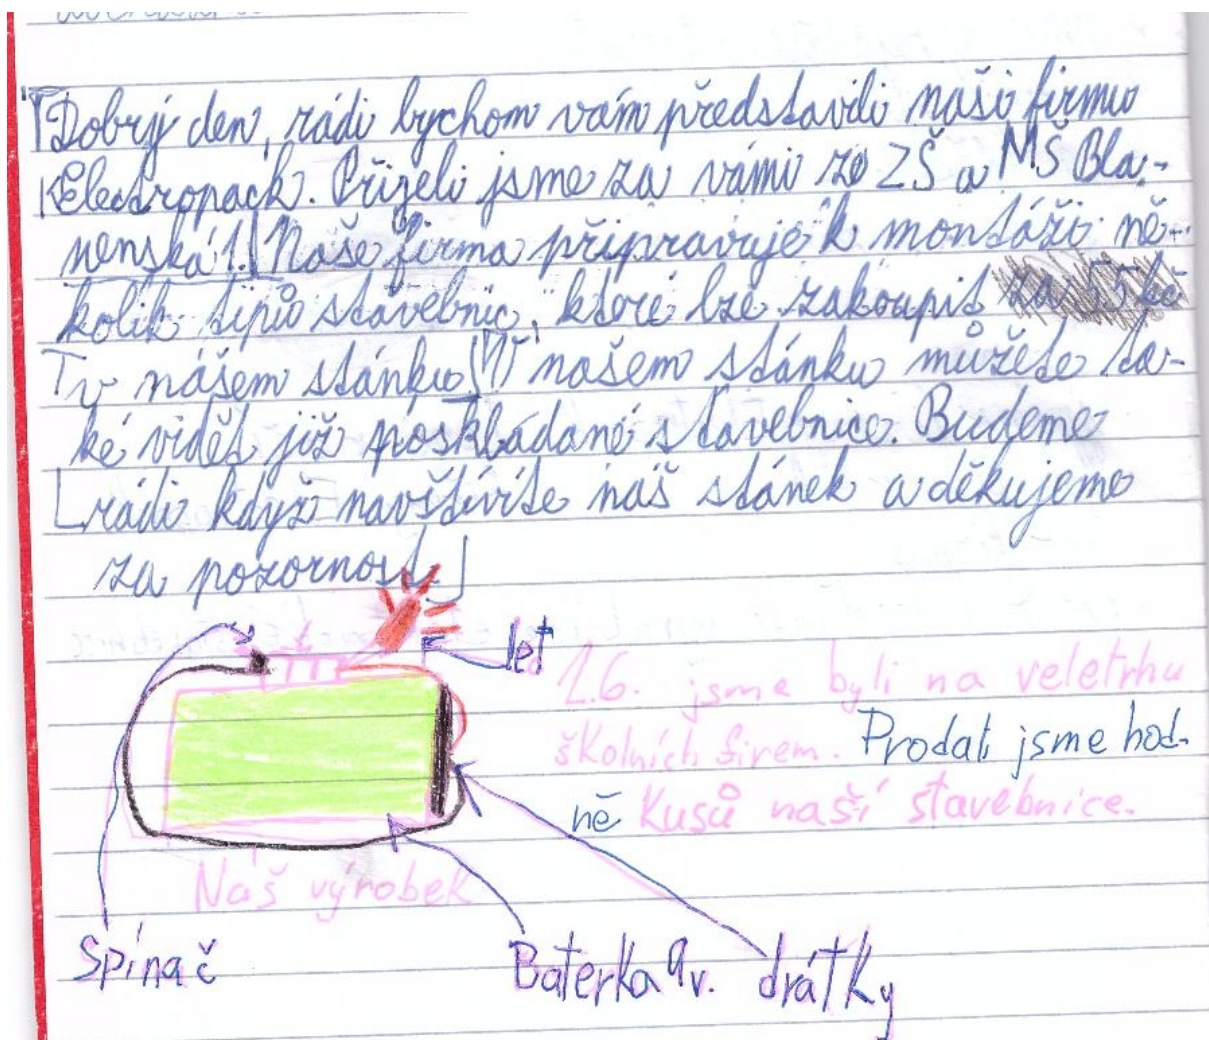 Dobrý den, rádi bychom vám představili naši firmu
Electropack. Přijeli jsme za vámi ze ZŠ a MŠ Bla-
nenská 1. Naše firma připravuje k montáži ně-
kolik tipů stavebnic, které lze zakoupit
v našem stánku. V našem stánku můžete ta-
ké vidět již poskládané stavebnice. Budeme
rádi když navštívíte náš stánek a děkujeme
za pozornost.
led
1.6. jsme byli na veletrhu
školních firem. Prodali jsme hod-
ně kusů naší stavebnice.
Náš výrobek
Spínač
Baterka 9v.
drátky